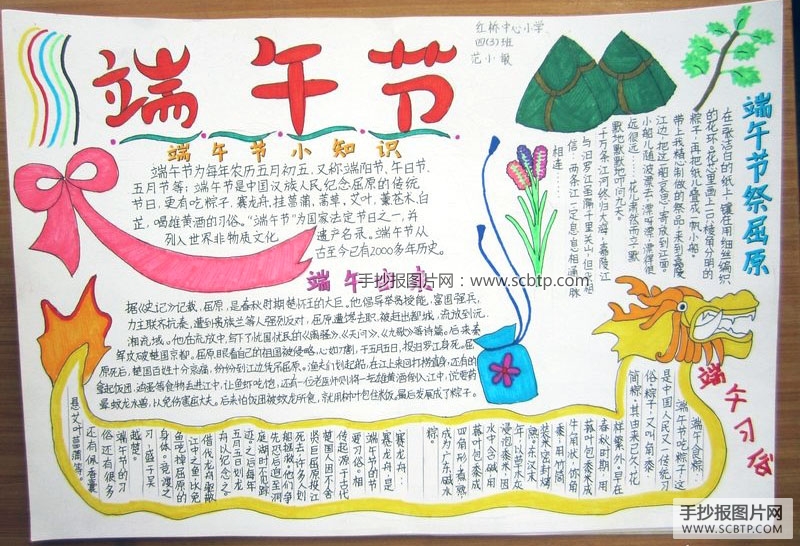 红桥中心小学
四(3)班
范小敏
端午节
端午节小知识
端午节为每年农历五月初五，又称端阳节、午日节、
五月节等；端午节是中国汉族人民纪念屈原的传统
节日，更有吃粽子，赛龙舟，挂菖蒲，蒿草，艾叶，薰苍术，白
芷，喝雄黄酒的习俗。“端午节”为国家法定节日之一，并
列入世界非物质文化 遗产名录。端午节从
古至今已有2000多年历史。
手抄报图片网：www.scbtp.com
端午
据《史记》记载，屈原，是春秋时期楚怀王的大臣。他倡导举贤授能，富国强兵，
力主联齐抗秦，遭到贵族兰等人强烈反对，屈原遭馋去职，被赶出都城，流放到沅、
湘流域。他在流放中，写下了忧国忧民的《离骚》、《天问》、《九歌》等诗篇。后来秦
军攻破楚国京都。屈原眼看自己的祖国被侵略，心如刀割，于五月五日，投汨罗江身死。屈
原死后，楚国百姓十分哀痛，纷纷到江边凭吊屈原。渔夫们划起船，在江上来回打捞真身，还有的
拿起饭团、鸡蛋等食物丢进江中，让鱼虾吃饱，还有一位老医师则将一坛雄黄酒倒入江中，说要药
晕蛟龙水兽，以免伤害屈大夫。后来怕饭团被蛟龙所食，就用树叶包住米饭，最后发展成了粽子。
端午节祭屈原
在一张洁白的纸上镶在用细丝编织
的花环。花心里画上一口八棱角分明的
粽子，再把纸儿叠成一帆小船。
带上我精心制做的祭品，来到嘉陵
江边，把这
小船儿随波漂去，漂呀漂，漂得很
远很远……
默地默默地叩问九天。
千万条江河终归大海，嘉陵江
与汨罗江虽隔千里关山，但我坚
信：两条江一定息息相通，血脉
相连……
端午习俗
端午食粽：
端午节吃粽子，这
是中国人民又一传统习
俗。粽子，又叫“角黍”、
“简粽”。其由来已久，花
样繁外。早在
春秋时期，用
菰叶包黍米成
牛角状，“饰角
黍”；用竹筒
装米密封烤
熟；东汉末
年，以草木灰
浸泡黍米，因
水中含碱，用
菰叶包黍米成
四角形，煮熟，
成为广东碱水
粽。
赛龙舟：
赛龙舟，是
端午节的节
要习俗。相
传起源于古代
楚国人因不舍
贤臣屈原投江
死去，许多人划
船拯救。他们争
先恐后，追至洞
庭湖时不见踪
迹。之后每年
五月五日划龙
舟以纪念之。
借代龙舟驱散
江中之鱼，以免
鱼吃掉屈原的
身体。竞渡之
习，盛于吴
越楚。
端午节的习
俗还有很多，
还有佩香囊、
悬艾叶菖蒲等。
手抄报图片网
WWW.SCBTP.COM